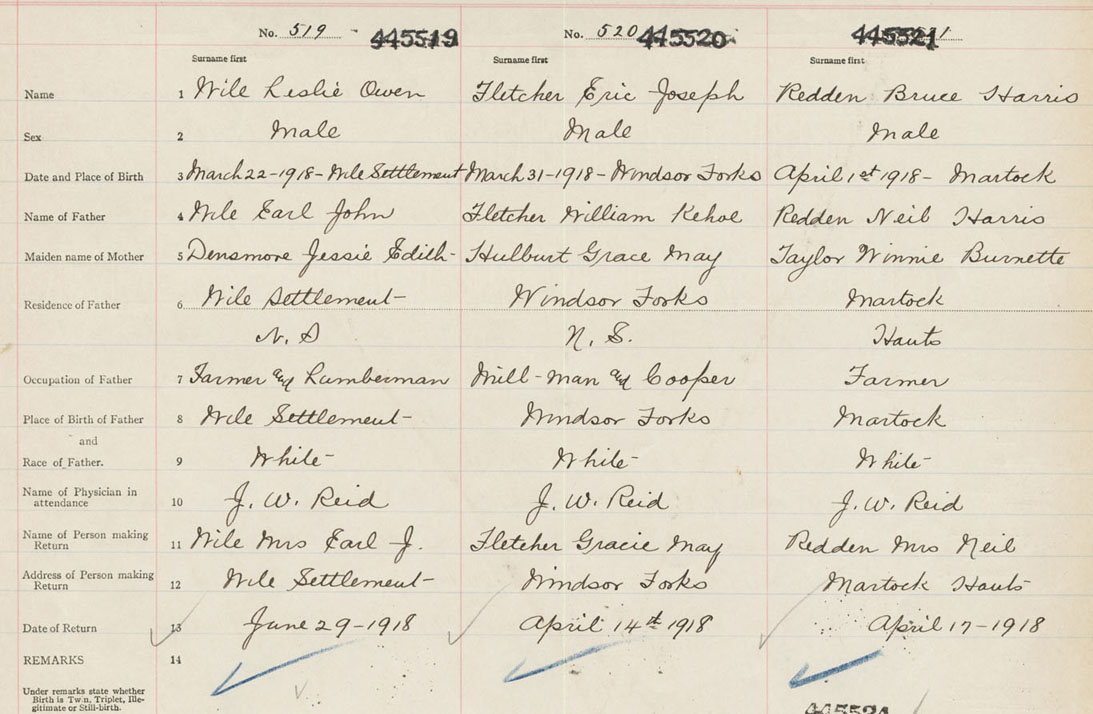 No. 519 445519 No. 520 445520 445521
Surname first Surname first Surname first
Name 1 Wile Leslie Owen Fletcher Eric Joseph Redden Bruce Harris
Sex 2 Male Male Male
Date and Place of Birth 3 March 22-1918- Wile Settlement March 31-1918- Windsor Forks April 1st 1918- Martock
Name of Father 4 Wile Earl John Fletcher William Kehoe Redden Neil Harris
Maiden name of Mother 5 Densmore Jessie Edith- Hulburt Grace May Taylor Winnie Burnette
Residence of Father 6 Wile Settlement- Windsor Forks Martock
N. S N. S. Hants
Occupation of Father 7 Farmer and Lumberman Mill-man and Cooper Farmer
Place of Birth of Father 8 Wile Settlement- Windsor Forks Martock
and
Race of Father. 9 White- White- White-
Name of Physician in
attendance 10 J. W. Reid J. W. Reid J. W. Reid
Name of Person making
Return 11 Wile Mrs Earl J. Fletcher Gracie May Redden Mrs Neil
Address of Person making
Return 12 Wile Settlement- Windsor Forks Martock Hants
Date of Return 13 June 29-1918 April 14th 1918 April 17-1918
REMARKS 14
Under remarks state whether
Birth is Twin, Triplet, Ille-
gitimate or Still-birth.